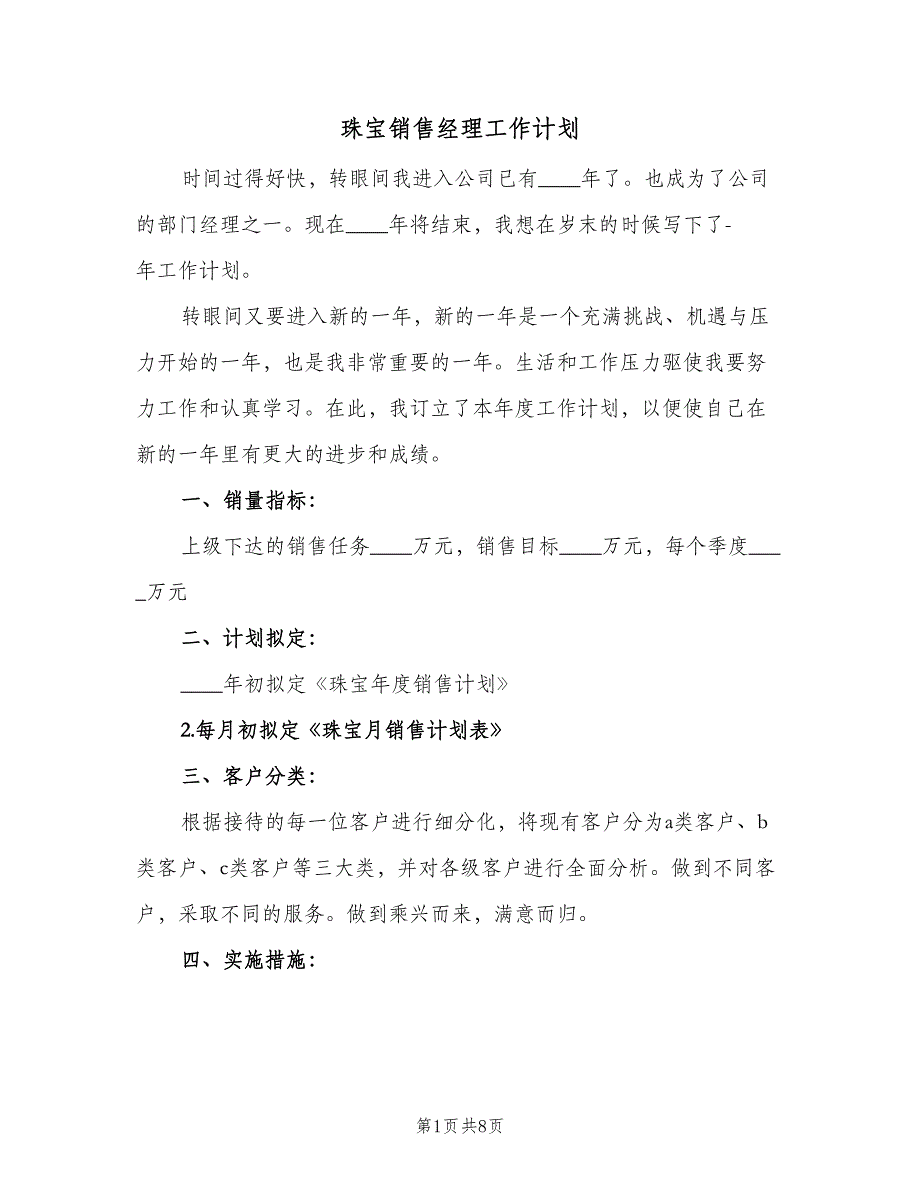 珠宝销售经理工作计划
时间过得好快，转眼间我进入公司已有____年了。也成为了公司
的部门经理之一。现在____年将结束，我想在岁末的时候写下了-
年工作计划。
转眼间又要进入新的一年，新的一年是一个充满挑战、机遇与压
力开始的一年，也是我非常重要的一年。生活和工作压力驱使我要努
力工作和认真学习。在此，我订立了本年度工作计划，以便使自己在
新的一年里有更大的进步和成绩。
一、销量指标：
上级下达的销售任务____万元，销售目标____万元，每个季度___
_万元
二、计划拟定：
____年初拟定《珠宝年度销售计划》
2.每月初拟定《珠宝月销售计划表》
三、客户分类：
根据接待的每一位客户进行细分化，将现有客户分为a类客户、b
类客户、c类客户等三大类，并对各级客户进行全面分析。做到不同客
户，采取不同的服务。做到乘兴而来，满意而归。
四、实施措施：
第1页 共8页